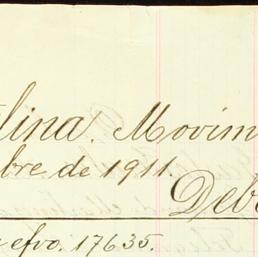 lina. Movim
bre de 1911.
Deb
efvo. 17635.